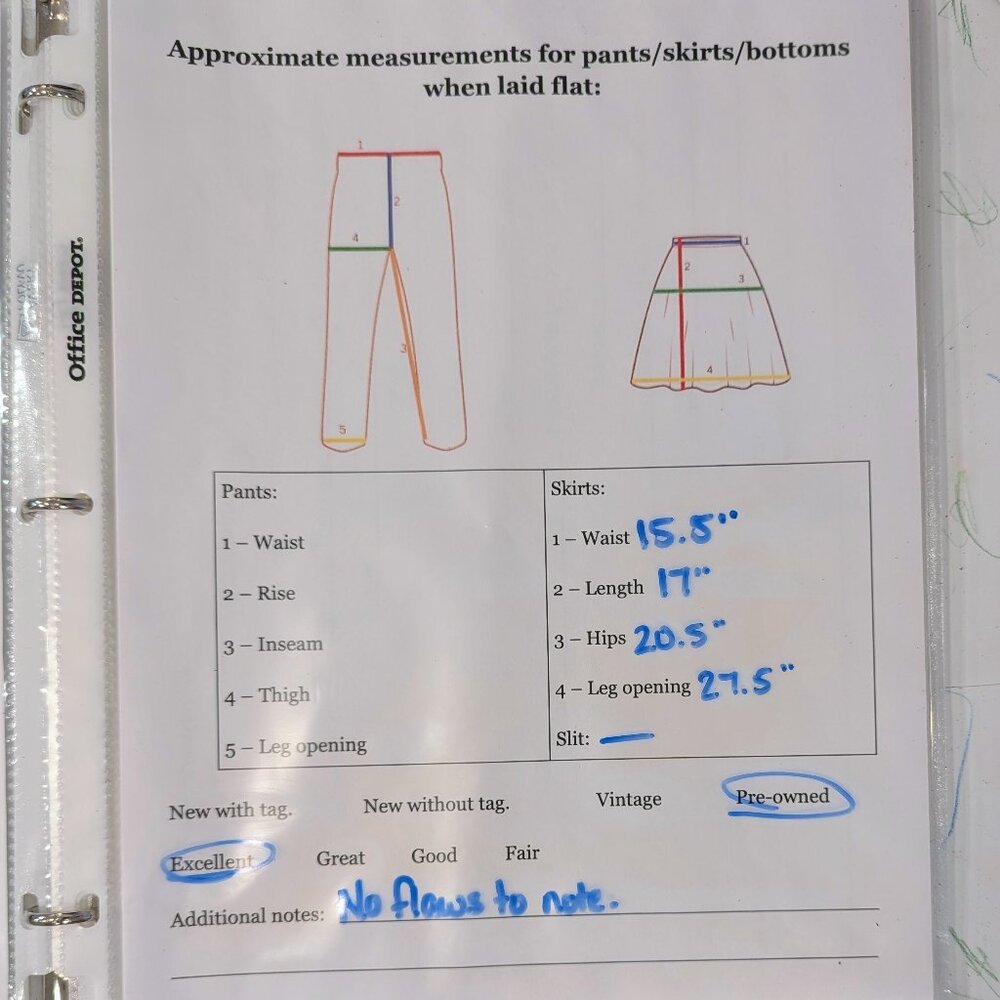 Approximate measurements for pants/skirts/bottoms
when laid flat:
Office DEPOT.
1
2
4
3
5
1
2
3
4
Pants:
1 – Waist
2 – Rise
3 – Inseam
4 – Thigh
5 – Leg opening
Skirts:
1 – Waist 15.5"
2 – Length 17"
3 – Hips 20.5"
4 – Leg opening 27.5"
Slit: —
New with tag. New without tag. Vintage Pre-owned
Excellent Great Good Fair
Additional notes: No flaws to note.